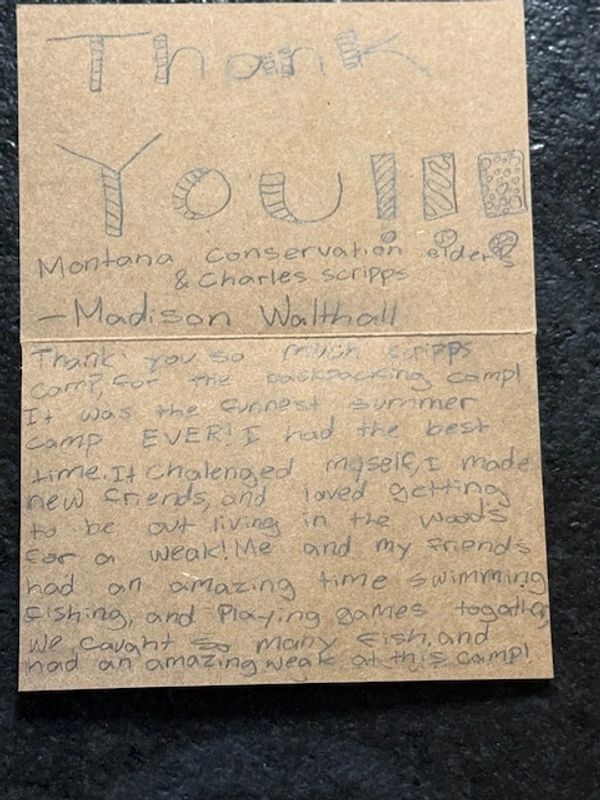 Thank
You!!!
Montana Conservation elders
& Charles scripps
- Madison Walthall
Thank you so much scripps
camp, for the backpacking camp!
It was the funnest summer
camp EVER! I had the best
time. It chalenged myself, I made
new friends, and loved getting
to be out living in the woods
for a weak! Me and my friends
had an amazing time swimming
fishing, and Playing games togather,
we caught so many fish, and
had an amazing weak at this camp!